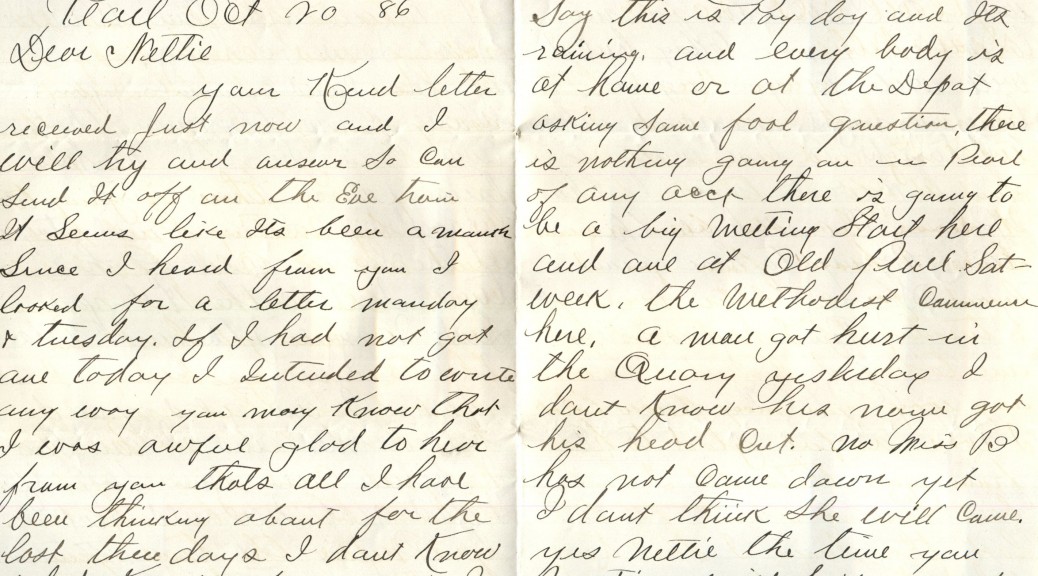 Pearl Oct 20 86
Dear Nettie
your Kind letter
received Just now and I
will try and answer So Can
Send It off on the Eve train
It Seems like Its been a month
Since I heard from you I
looked for a letter monday
& tuesday. If I had not got
one today I Intended to write
any way you may Know that
I was awful glad to hear
from you thats all I have
been thinking about for the
last three days I dont Know
Say this is Pay day and Its
raining. and every body is
at home or at the Depot
asking Some fool question, there
is nothing going on in Pearl
of any acct there is going to
be a big meeting Start here
and one at Old Pearl Sat-
week. the Methodist Commence
here. a man got hurt in
the Quary yesterday I
dont Know his name got
his head Cut. no Miss B
has not Came down yet
I dont think She will Come.
yes Nettie the time you